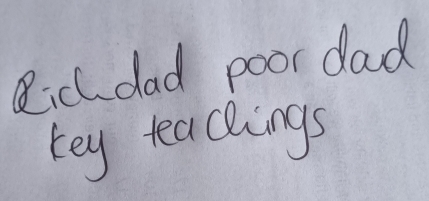 Richdad poor dad
key teachings